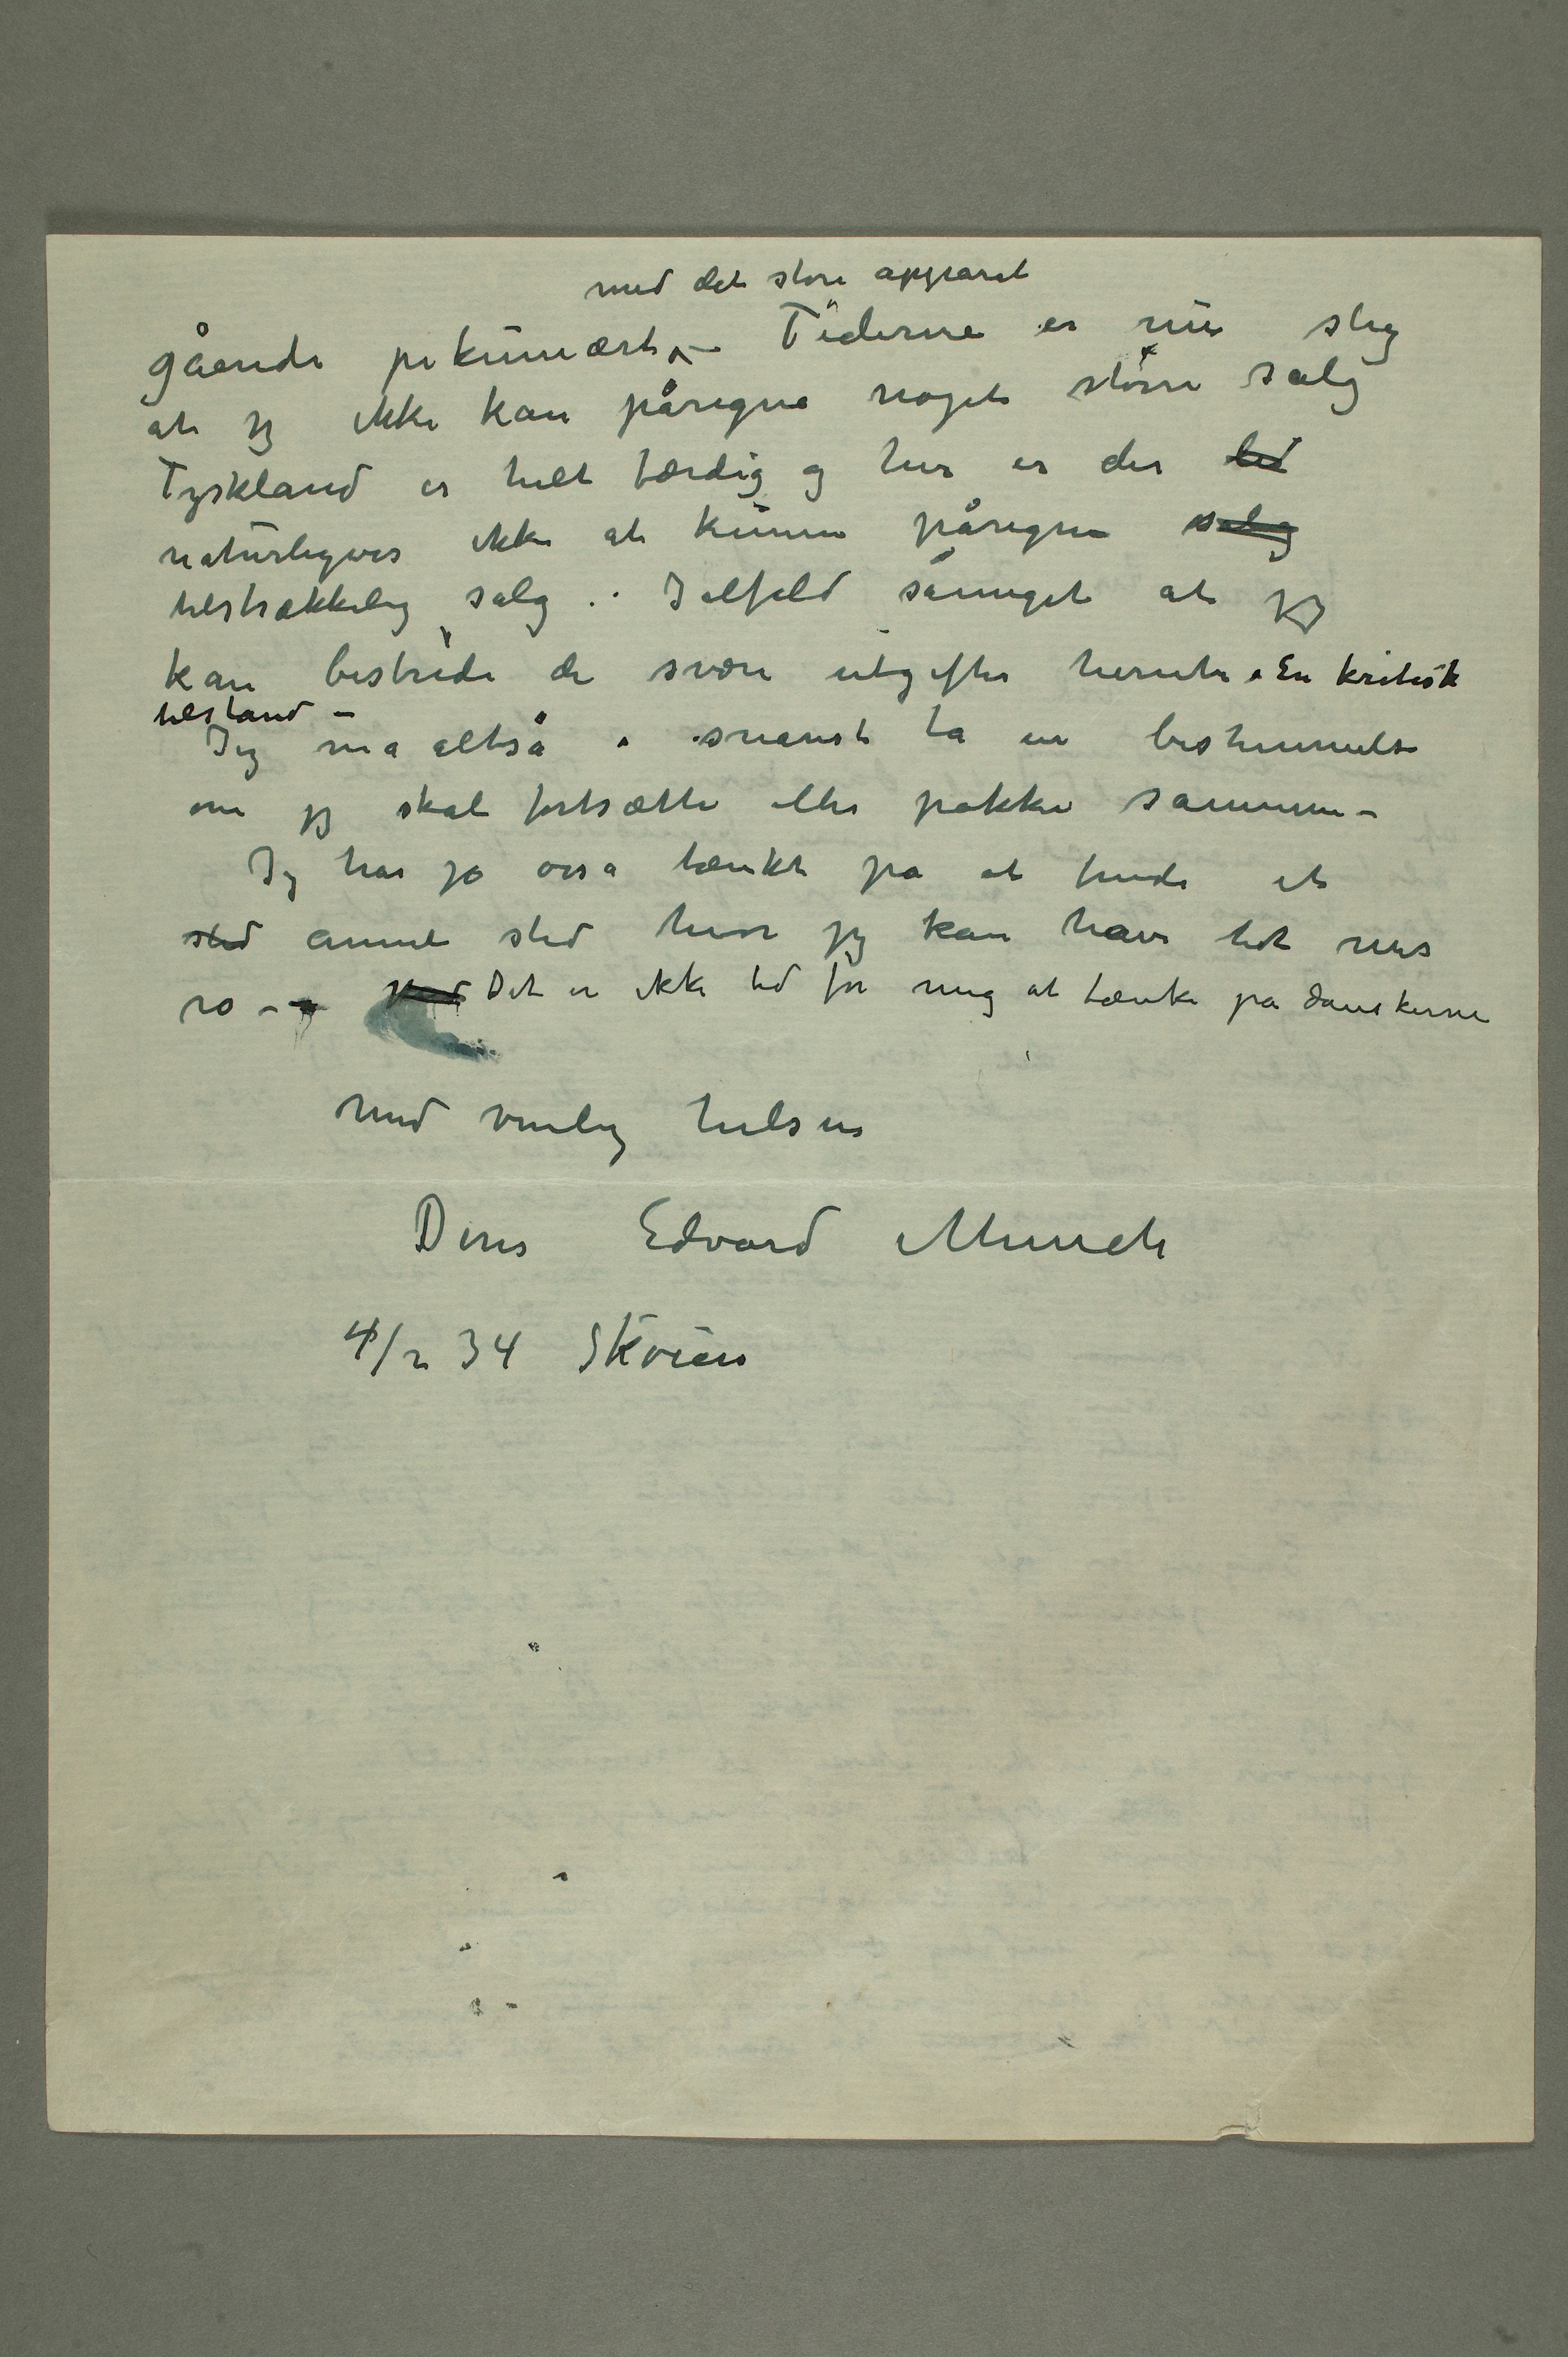 med det store apparat
gående pekuniært – Tiderne er nu slig
at jeg ikke kan påregne noget større salg
Tyskland er helt færdig og her er der
naturligvis ikke at kunne påregne salg
tilstrækkelig salg . Ialfald såmeget at jeg
kan bestride de svære utgifter herute . En kritisk
tilstand –
Jeg må altså snarest ta en bestemmelse
om jeg skal fortsætte eller pakke sammen –
Jeg har jo også tænkt på at finde et
sted annet sted hvor jeg kan have lidt mer
ro – Det er ikke tid for mig at tænke på danskerne
Med venlig hilsen
Deres Edvard Munch
4/2 34 Skøien